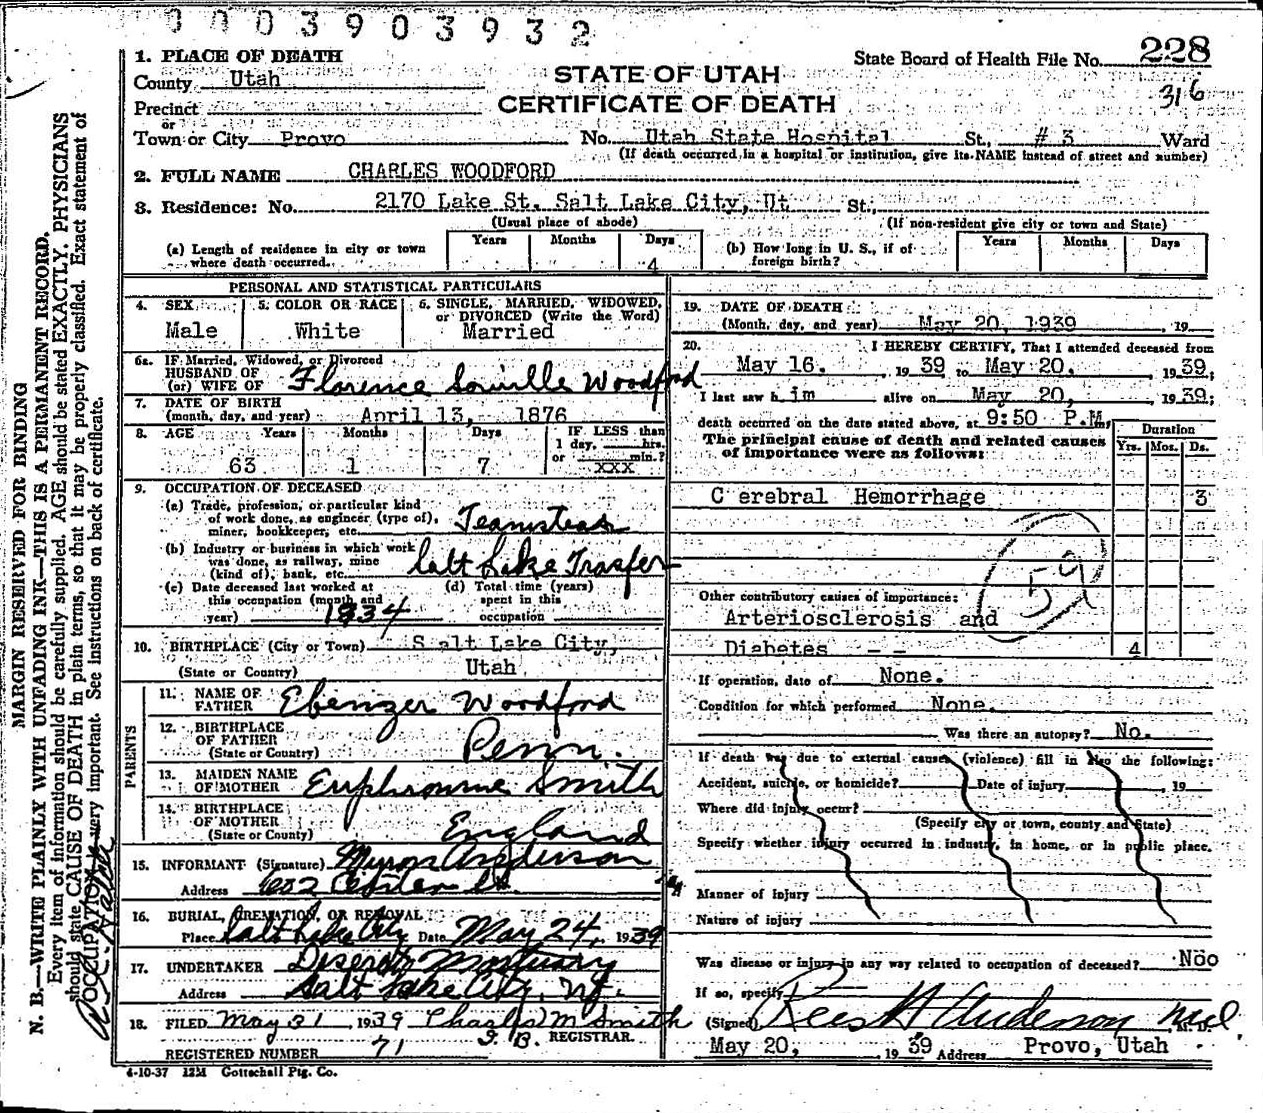 0003903932
1. PLACE OF DEATH
State Board of Health File No. 228
County Utah
STATE OF UTAH
316
Precinct
CERTIFICATE OF DEATH
or
Town or City Provo No. Utah State Hospital St., # 3 Ward
(If death occurred in a hospital or institution, give its NAME instead of street and number)
2. FULL NAME CHARLES WOODFORD
3. Residence: No. 2170 Lake St. Salt Lake City, Ut St.,
(Usual place of abode) (If non-resident give city or town and State)
(a) Length of residence in city or town where death occurred. Years Months Days 4
(b) How long in U. S., if of foreign birth? Years Months Days
PERSONAL AND STATISTICAL PARTICULARS
4. SEX Male
5. COLOR OR RACE White
6. SINGLE, MARRIED, WIDOWED, or DIVORCED (Write the Word) Married
6a. IF Married, Widowed, or Divorced
HUSBAND OF
(or) WIFE OF Florence Woodford
7. DATE OF BIRTH
(month, day, and year) April 13, 1876
8. AGE Years Months Days IF LESS than
1 day, hrs.
or min.?
63 1 7 xxx
9. OCCUPATION OF DECEASED
(a) Trade, profession, or particular kind
of work done, as engineer (type of),
miner, bookkeeper, etc. Teamster
(b) Industry or business in which work
was done, as railway, mine
(kind of), bank, etc. Salt Lake Trasfer
(c) Date deceased last worked at
this occupation (month and
year) 1934
(d) Total time (years)
spent in this
occupation
10. BIRTHPLACE (City or Town) Salt Lake City,
(State or Country) Utah
PARENTS
11. NAME OF
FATHER Ebenezer Woodford
12. BIRTHPLACE
OF FATHER
(State or Country) Penn.
13. MAIDEN NAME
OF MOTHER Smith
14. BIRTHPLACE
OF MOTHER
(State or County) England
15. INFORMANT (Signature) Myron Anderson
Address
16. BURIAL, CREMATION, OR REMOVAL
Place Salt Lake City Date May 24, 1939
17. UNDERTAKER Deseret Mortuary
Address Salt Lake City, Ut.
18. FILED May 31 1939 Charles M Smith
REGISTRAR.
REGISTERED NUMBER 71
4-10-37 12M Gottschall Ptg. Co.
19. DATE OF DEATH
(Month, day, and year) May 20, 1939 , 19
20. I HEREBY CERTIFY, That I attended deceased from
May 16. , 19 39 to May 20, , 19 39;
I last saw h im alive on May 20, , 19 39;
death occurred on the date stated above, at 9:50 P.M.
The principal cause of death and related causes
of importance were as follows:
Duration
Yrs. Mos. Ds.
C erebral Hemorrhage 3
59
Other contributory causes of importance:
Arteriosclerosis and
Diabetes - - 4
If operation, date of None.
Condition for which performed None.
Was there an autopsy? No.
If death was due to external causes (violence) fill in also the following:
Accident, suicide, or homicide? Date of injury , 19
Where did injury occur?
(Specify city or town, county and State)
Specify whether injury occurred in industry, in home, or in public place.
Manner of injury
Nature of injury
Was disease or injury in any way related to occupation of deceased? Noo
If so, specify
(Signed) Rees H Anderson M.D.
May 20, , 19 39 Address Provo, Utah
MARGIN RESERVED FOR BINDING
N. B.—WRITE PLAINLY WITH UNFADING INK—THIS IS A PERMANENT RECORD.
Every item of information should be carefully supplied. AGE should be stated EXACTLY. PHYSICIANS
should state CAUSE OF DEATH in plain terms, so that it may be properly classified. Exact statement of
OCCUPATION very important. See instructions on back of certificate.